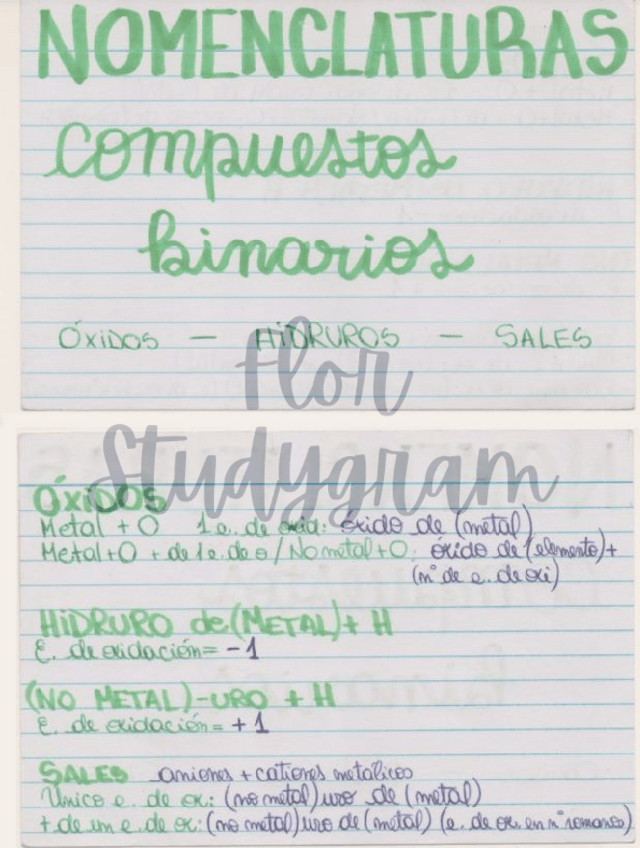 NOMENCLATURAS
compuestos
binarios
ÓXIDOS — HIDRUROS — SALES
Flor
Studygram
ÓXIDOS
Metal + O 1 e. de oxid: óxido de (metal)
Metal + O + de 1 e. de o / No metal + O: óxido de (elemento) +
(nº de e. de oxi)
HIDRURO de (METAL) + H
E. de oxidación = -1
(NO METAL) -URO + H
E. de oxidación = +1
SALES aniones + cationes metalicos
Unico e. de ox: (no metal) uro de (metal)
+ de un e. de ox: (no metal) uro de (metal) (e. de ox. en nº romanos)